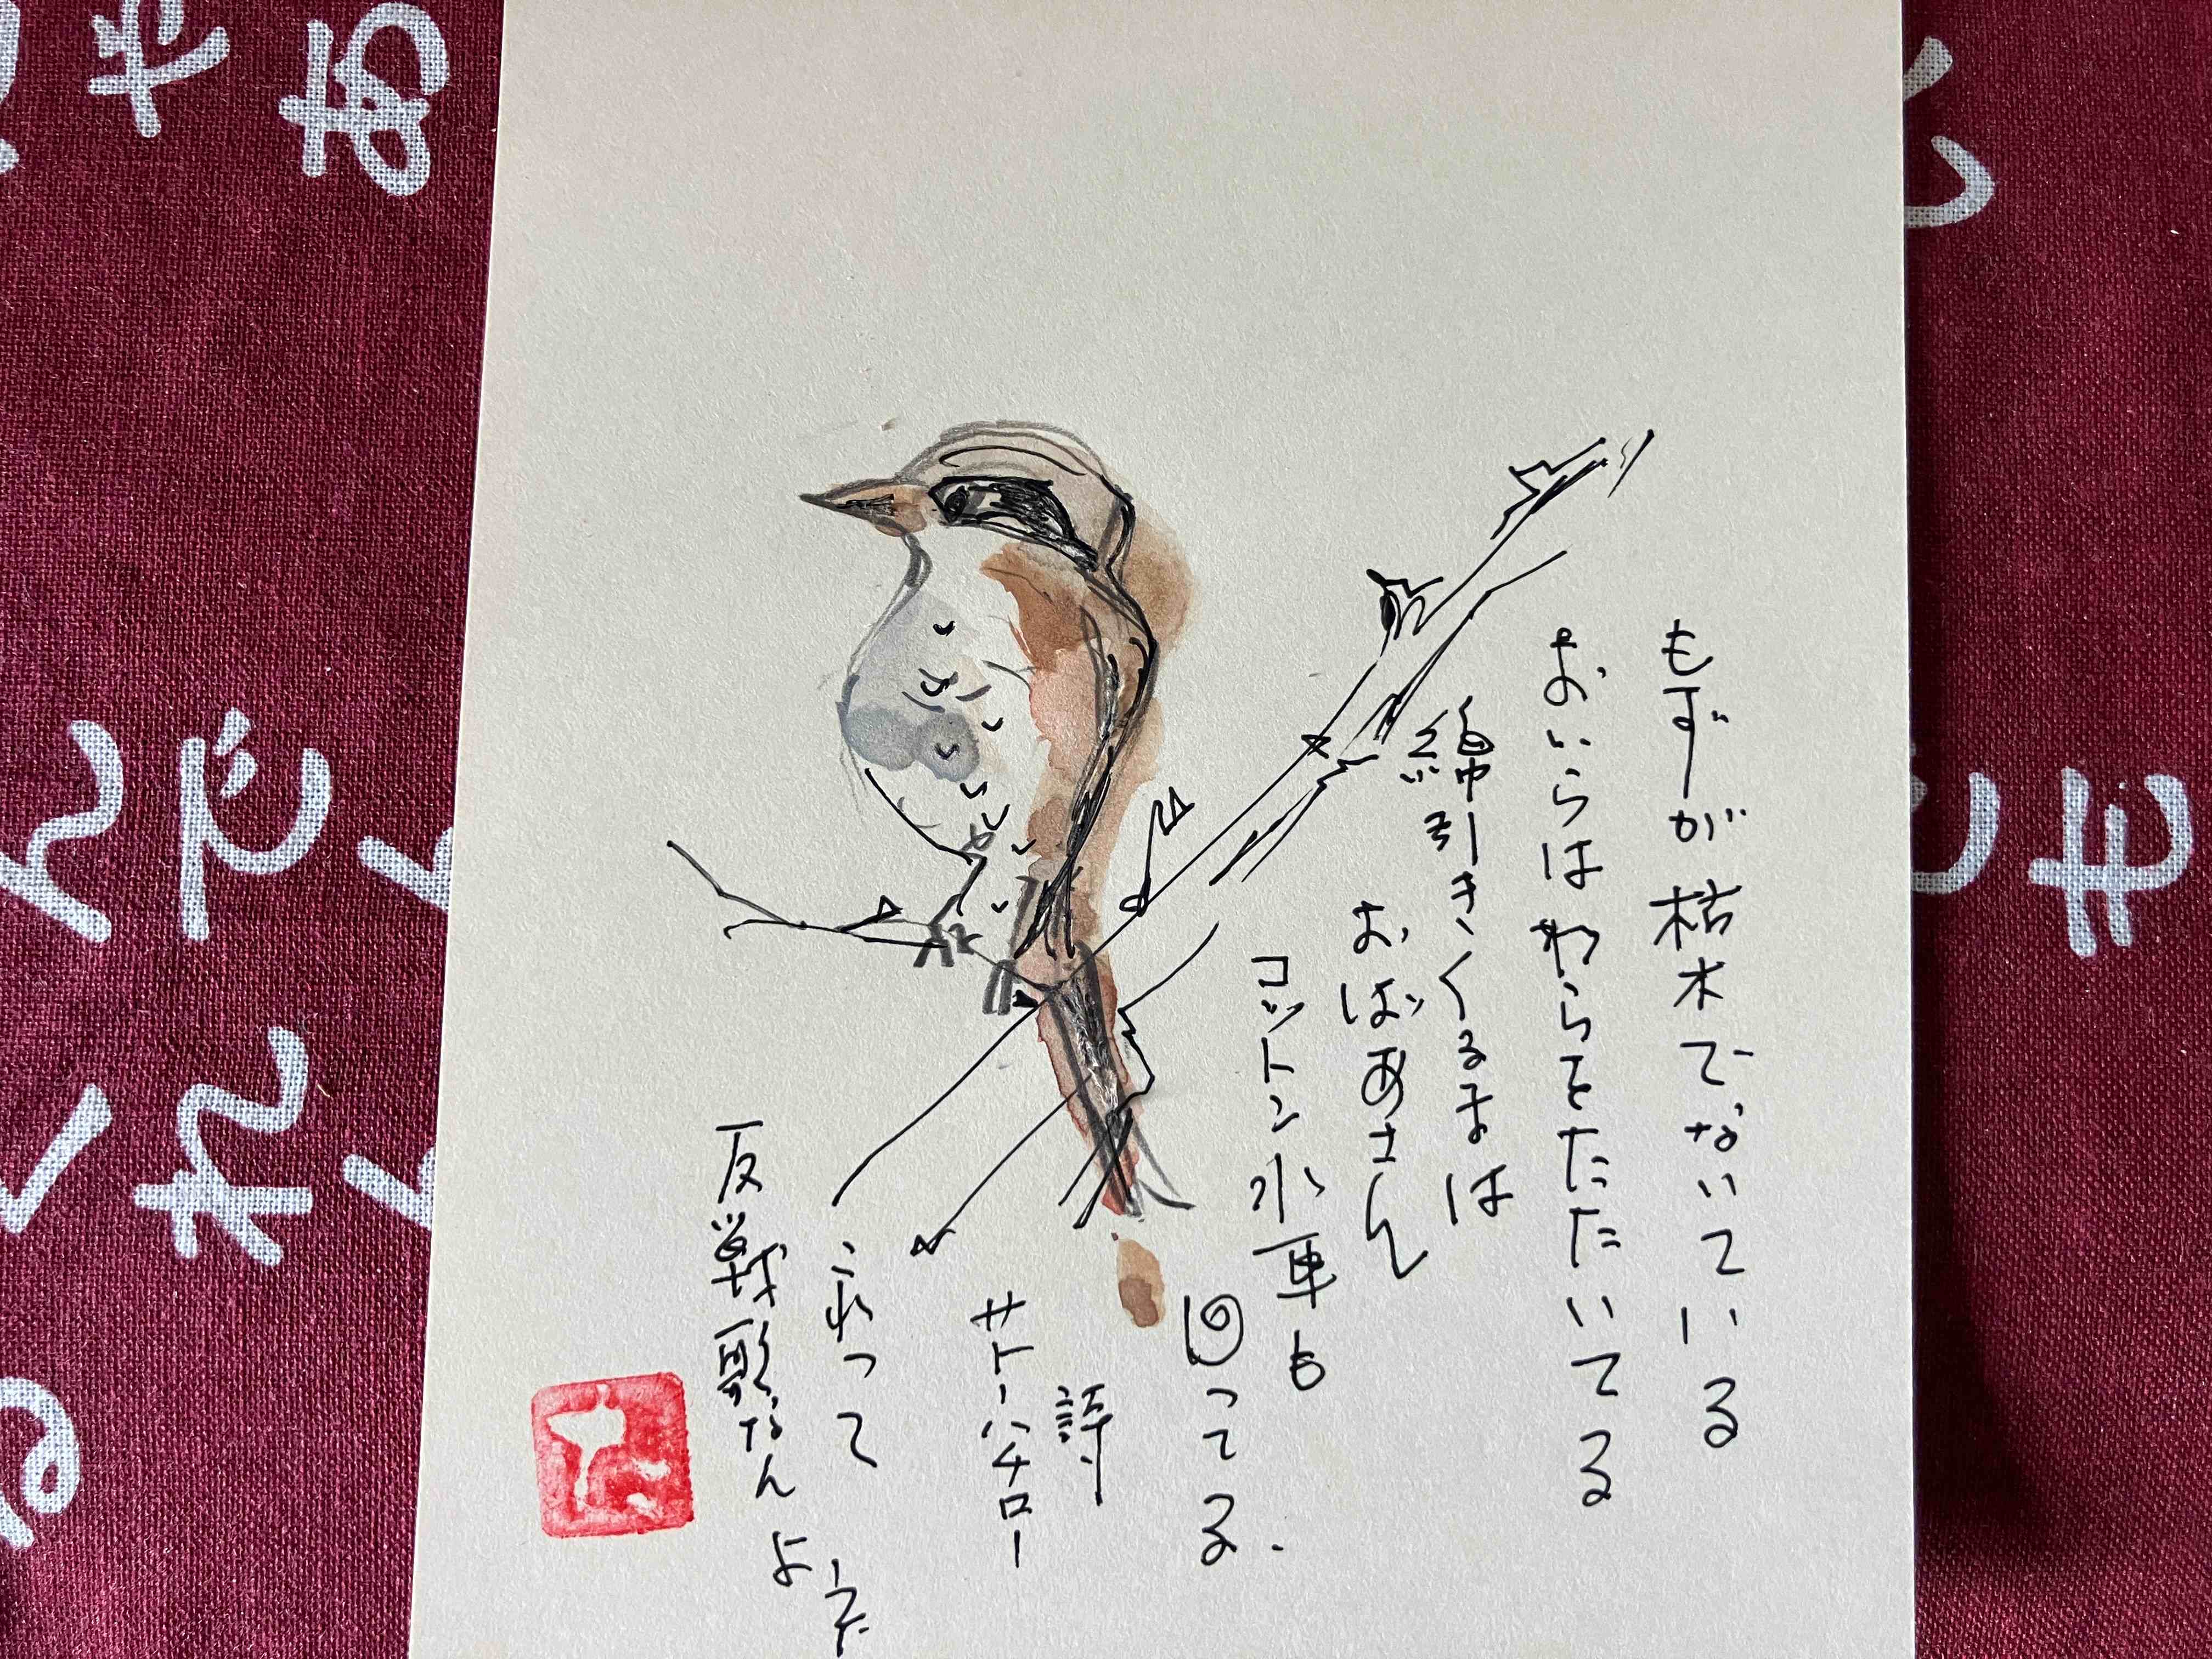 もずが枯木でないている
おいらはわらをたたいてる
綿引きくるまは
おばあさん
コットン水車も
回ってる.
詩
サトーハチロー
これって
反戦歌なんよ